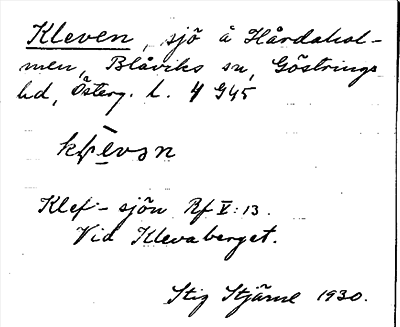 Kleven, sjö å Hårdahol-
men, Blåviks sn, Göstrings
hd, Österg. L. 4 G45
Klef-sjön Rf V:13.
Vid Klevaberget.
Stig Stjärne 1930.